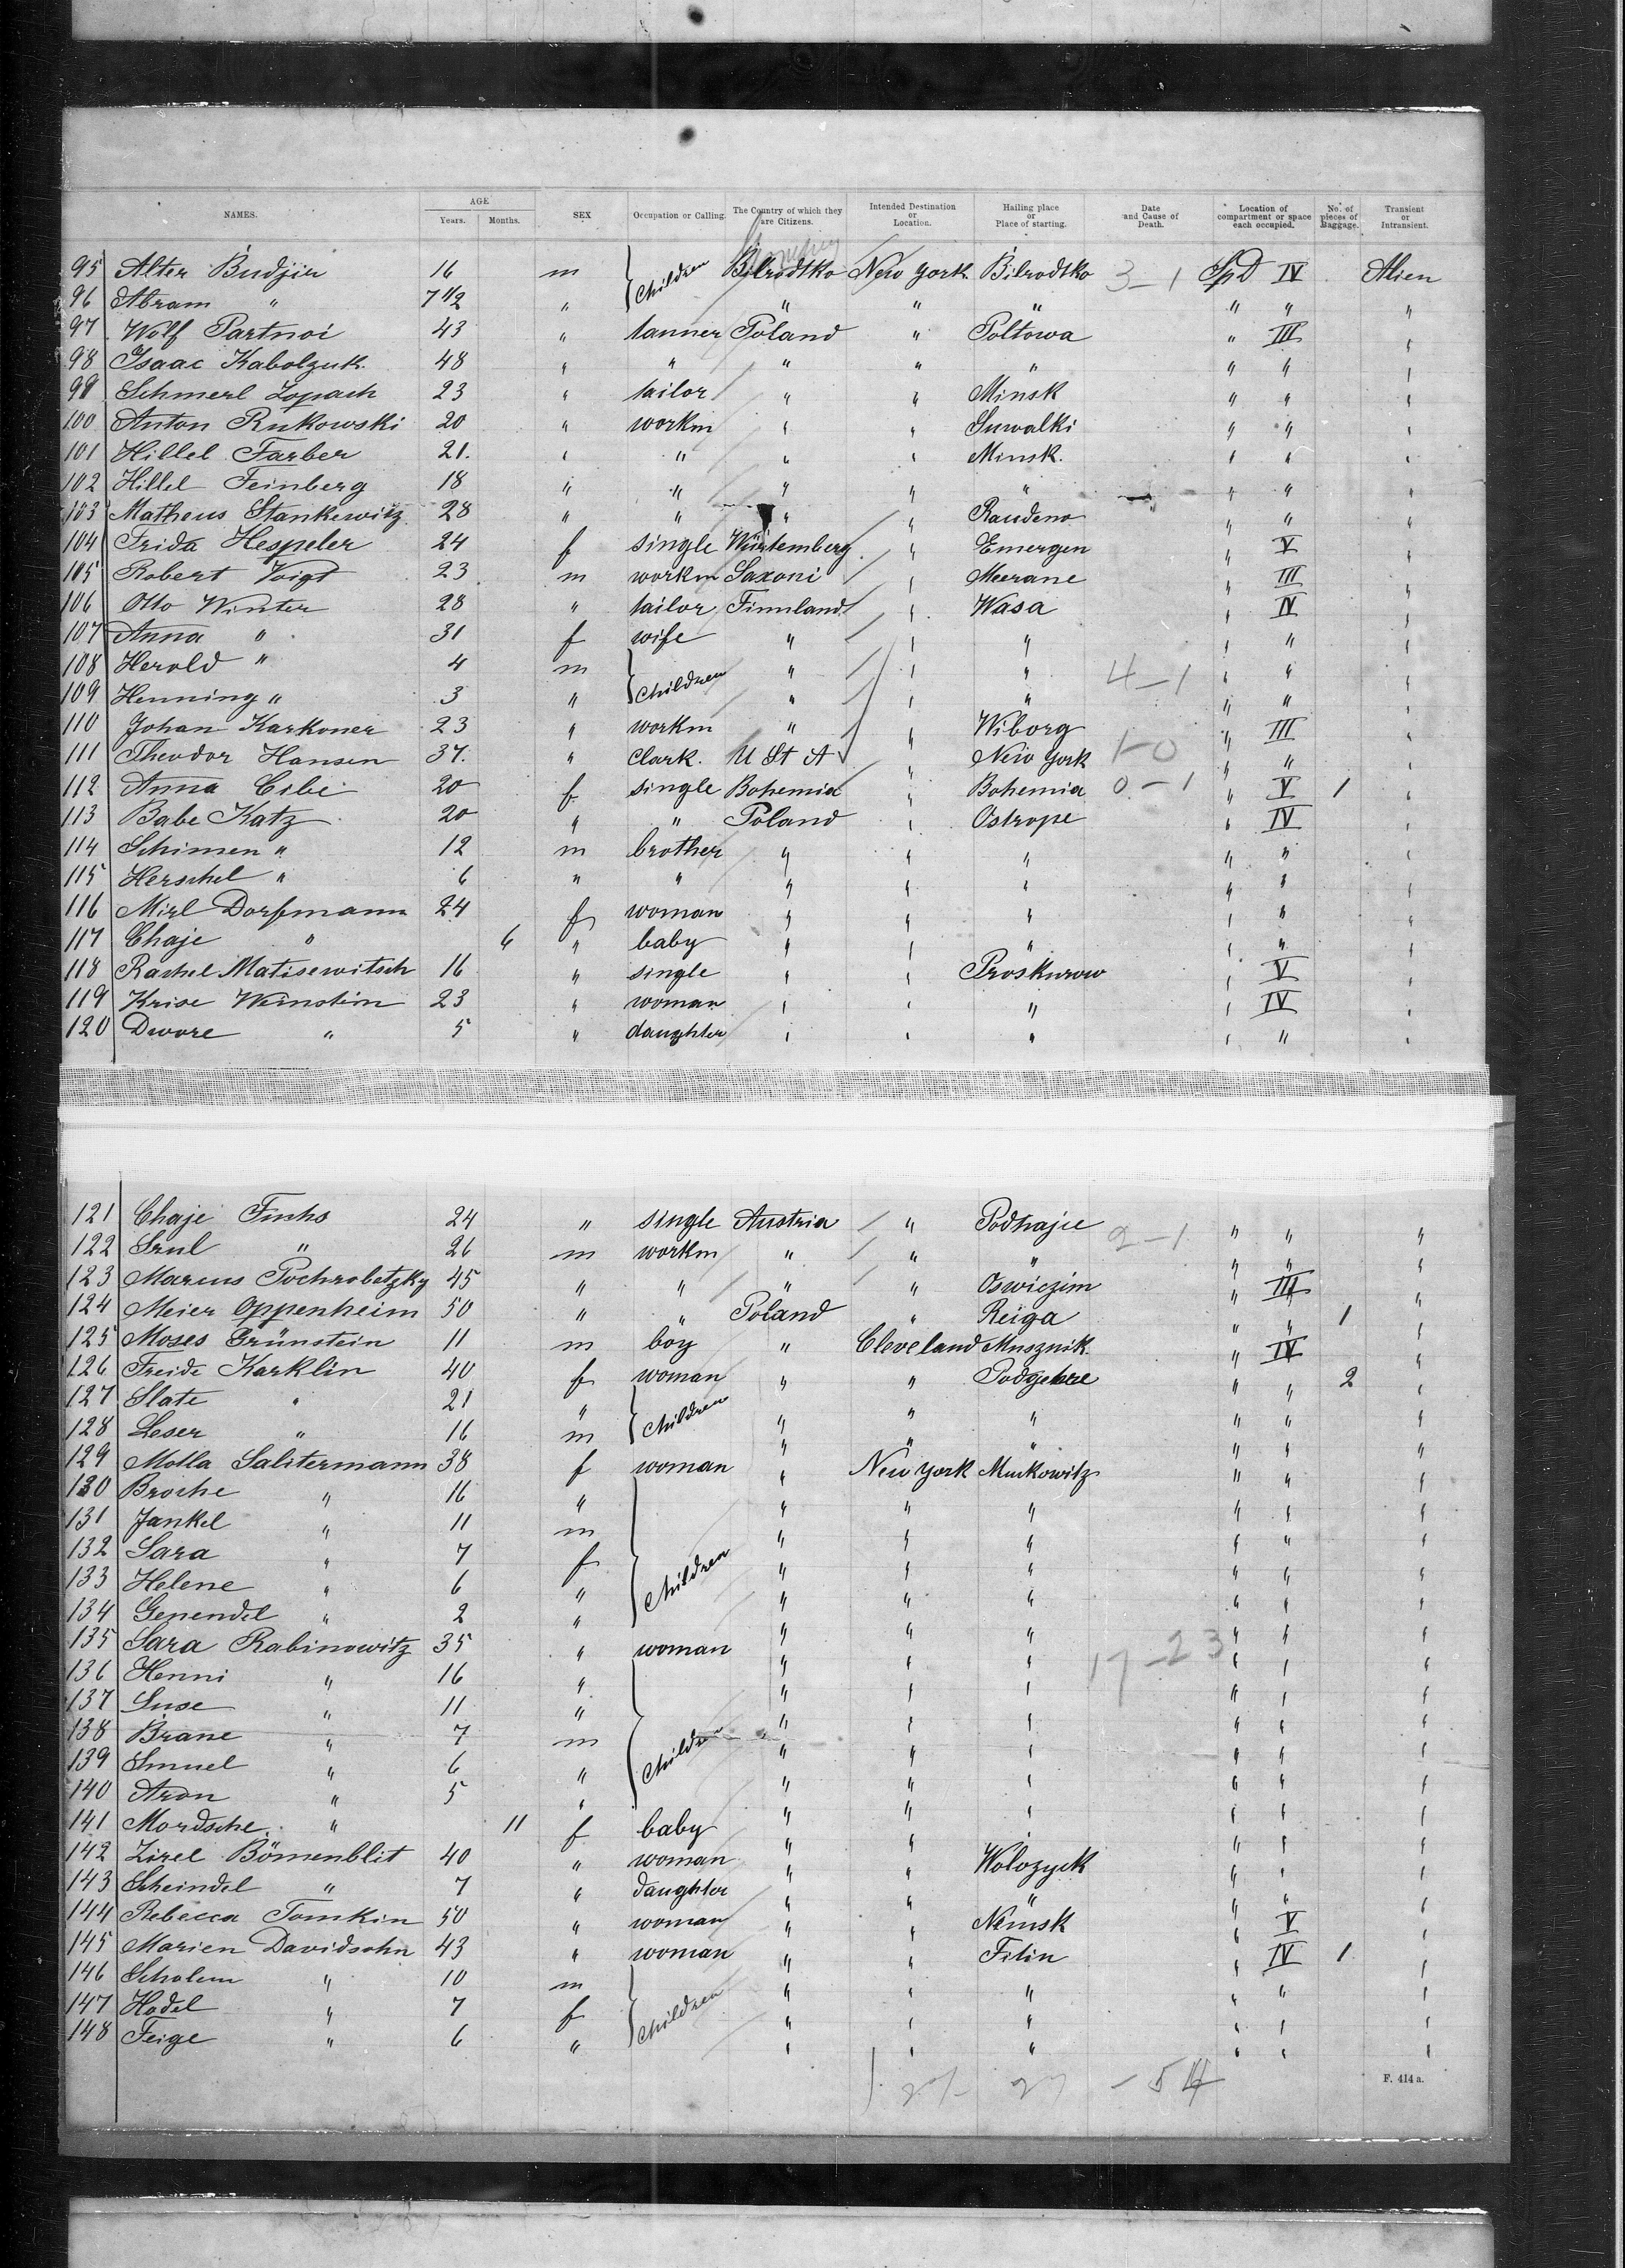 NAMES. AGE Years. Months. SEX Occupation or Calling. The Country of which they are Citizens. Intended Destination or Location. Hailing place or Place of starting. Date and Cause of Death. Location of compartment or space each occupied. No. of pieces of Baggage. Transient or Intransient.
95 Alter Budjin 16 m Children Bilrodtko New York Bilrodtko 3-1 Spd IV Alien
96 Abram " 7 1/2 " " " " " " "
97 Wolf Partnoi 43 " tanner Poland " Poltowa " III "
98 Isaac Kabolzuk 48 " " " " " " " "
99 Schmerl Zopach 23 " tailor " " Minsk " " "
100 Anton Rukowski 20 " workm " " Suwalki " " "
101 Hillel Farber 21. " " " " Minsk. " " "
102 Hillel Feinberg 18 " " " " " " " "
103 Matheus Stankewitz 28 " " " " Raudeno " " "
104 Frida Hespeler 24 f single Würtemberg " Emergen " V "
105 Robert Voigt 23 m workm Saxoni " Meerane " III "
106 Otto Winter 28 " tailor Finnland " Wasa " IV "
107 Anna " 31 f wife " " " " " "
108 Herold " 4 m Children " " " 4-1 " " "
109 Henning " 3 " " " " " " "
110 Johan Karkoner 23 " workm " " Wiborg " III "
111 Theodor Hansen 37. " Clark. U St A " New York 1-0 " " "
112 Anna Cibi 20 f single Bohemia " Bohemia 0-1 " V 1 "
113 Babe Katz 20 " " Poland " Ostrope " IV "
114 Schimen " 12 m brother " " " " " "
115 Herschel " 6 " " " " " " " "
116 Mirl Dorfmann 24 f woman " " " " " "
117 Chaje " 6 " baby " " " " " "
118 Rachel Matisewitsch 16 " single " " Proskurow " V "
119 Krise Weinstein 23 " woman " " " " IV "
120 Dwore " 5 " daughter " " " " " "
121 Chaje Fuchs 24 " single Austria " Podhajce 2-1 " " "
122 Srul " 26 m workm " " " " " "
123 Marcus Pochrobetzky 45 " " " " Oswiczim " III "
124 Meier Oppenheim 50 " " Poland " Reiga " " 1 "
125 Moses Grünstein 11 m boy " Cleveland Musznik. " IV "
126 Freide Karklin 40 f woman " " " " 2 "
127 Slate " 21 " Children " " " " " "
128 Leser " 16 m " " " " " "
129 Motla Salitermann 38 f woman " New York Murkowitz " " "
130 Broche " 16 " " " " " " "
131 Jankel " 11 m " " " " " "
132 Sara " 7 f Children " " " " " "
133 Helene " 6 " " " " " " "
134 Genendel " 2 " " " " " " "
135 Sara Rabinowitz 35 " woman " " " 17-23 " " "
136 Henni " 16 " " " " " " "
137 Suse " 11 " " " " " " "
138 Brane " 7 m Children " " " " " "
139 Smuel " 6 " " " " " " "
140 Aron " 5 " " " " " " "
141 Mordsche " 11 f baby " " " " " "
142 Zirel Bömenblit 40 " woman " " Wolozyck " " "
143 Scheindel " 7 " daughter " " " " " "
144 Rebecca Tomkin 50 " woman " " Nemsk " V "
145 Marien Davidsohn 43 " woman " " Filin " IV 1 "
146 Scholem " 10 m Children " " " " " "
147 Hodel " 7 f " " " " " "
148 Feige " 6 " " " " " " "
27 - 27 - 54
F. 414 a.